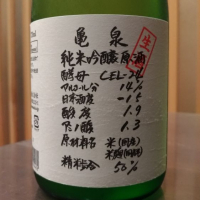 亀泉
生
純米吟醸原酒
酵母 CEL-24
アルコール分 14%
日本酒度 -15
酸度 1.9
アミノ酸 1.3
原材料名 米(国産)
米麹(国産米)
精米歩合 50%